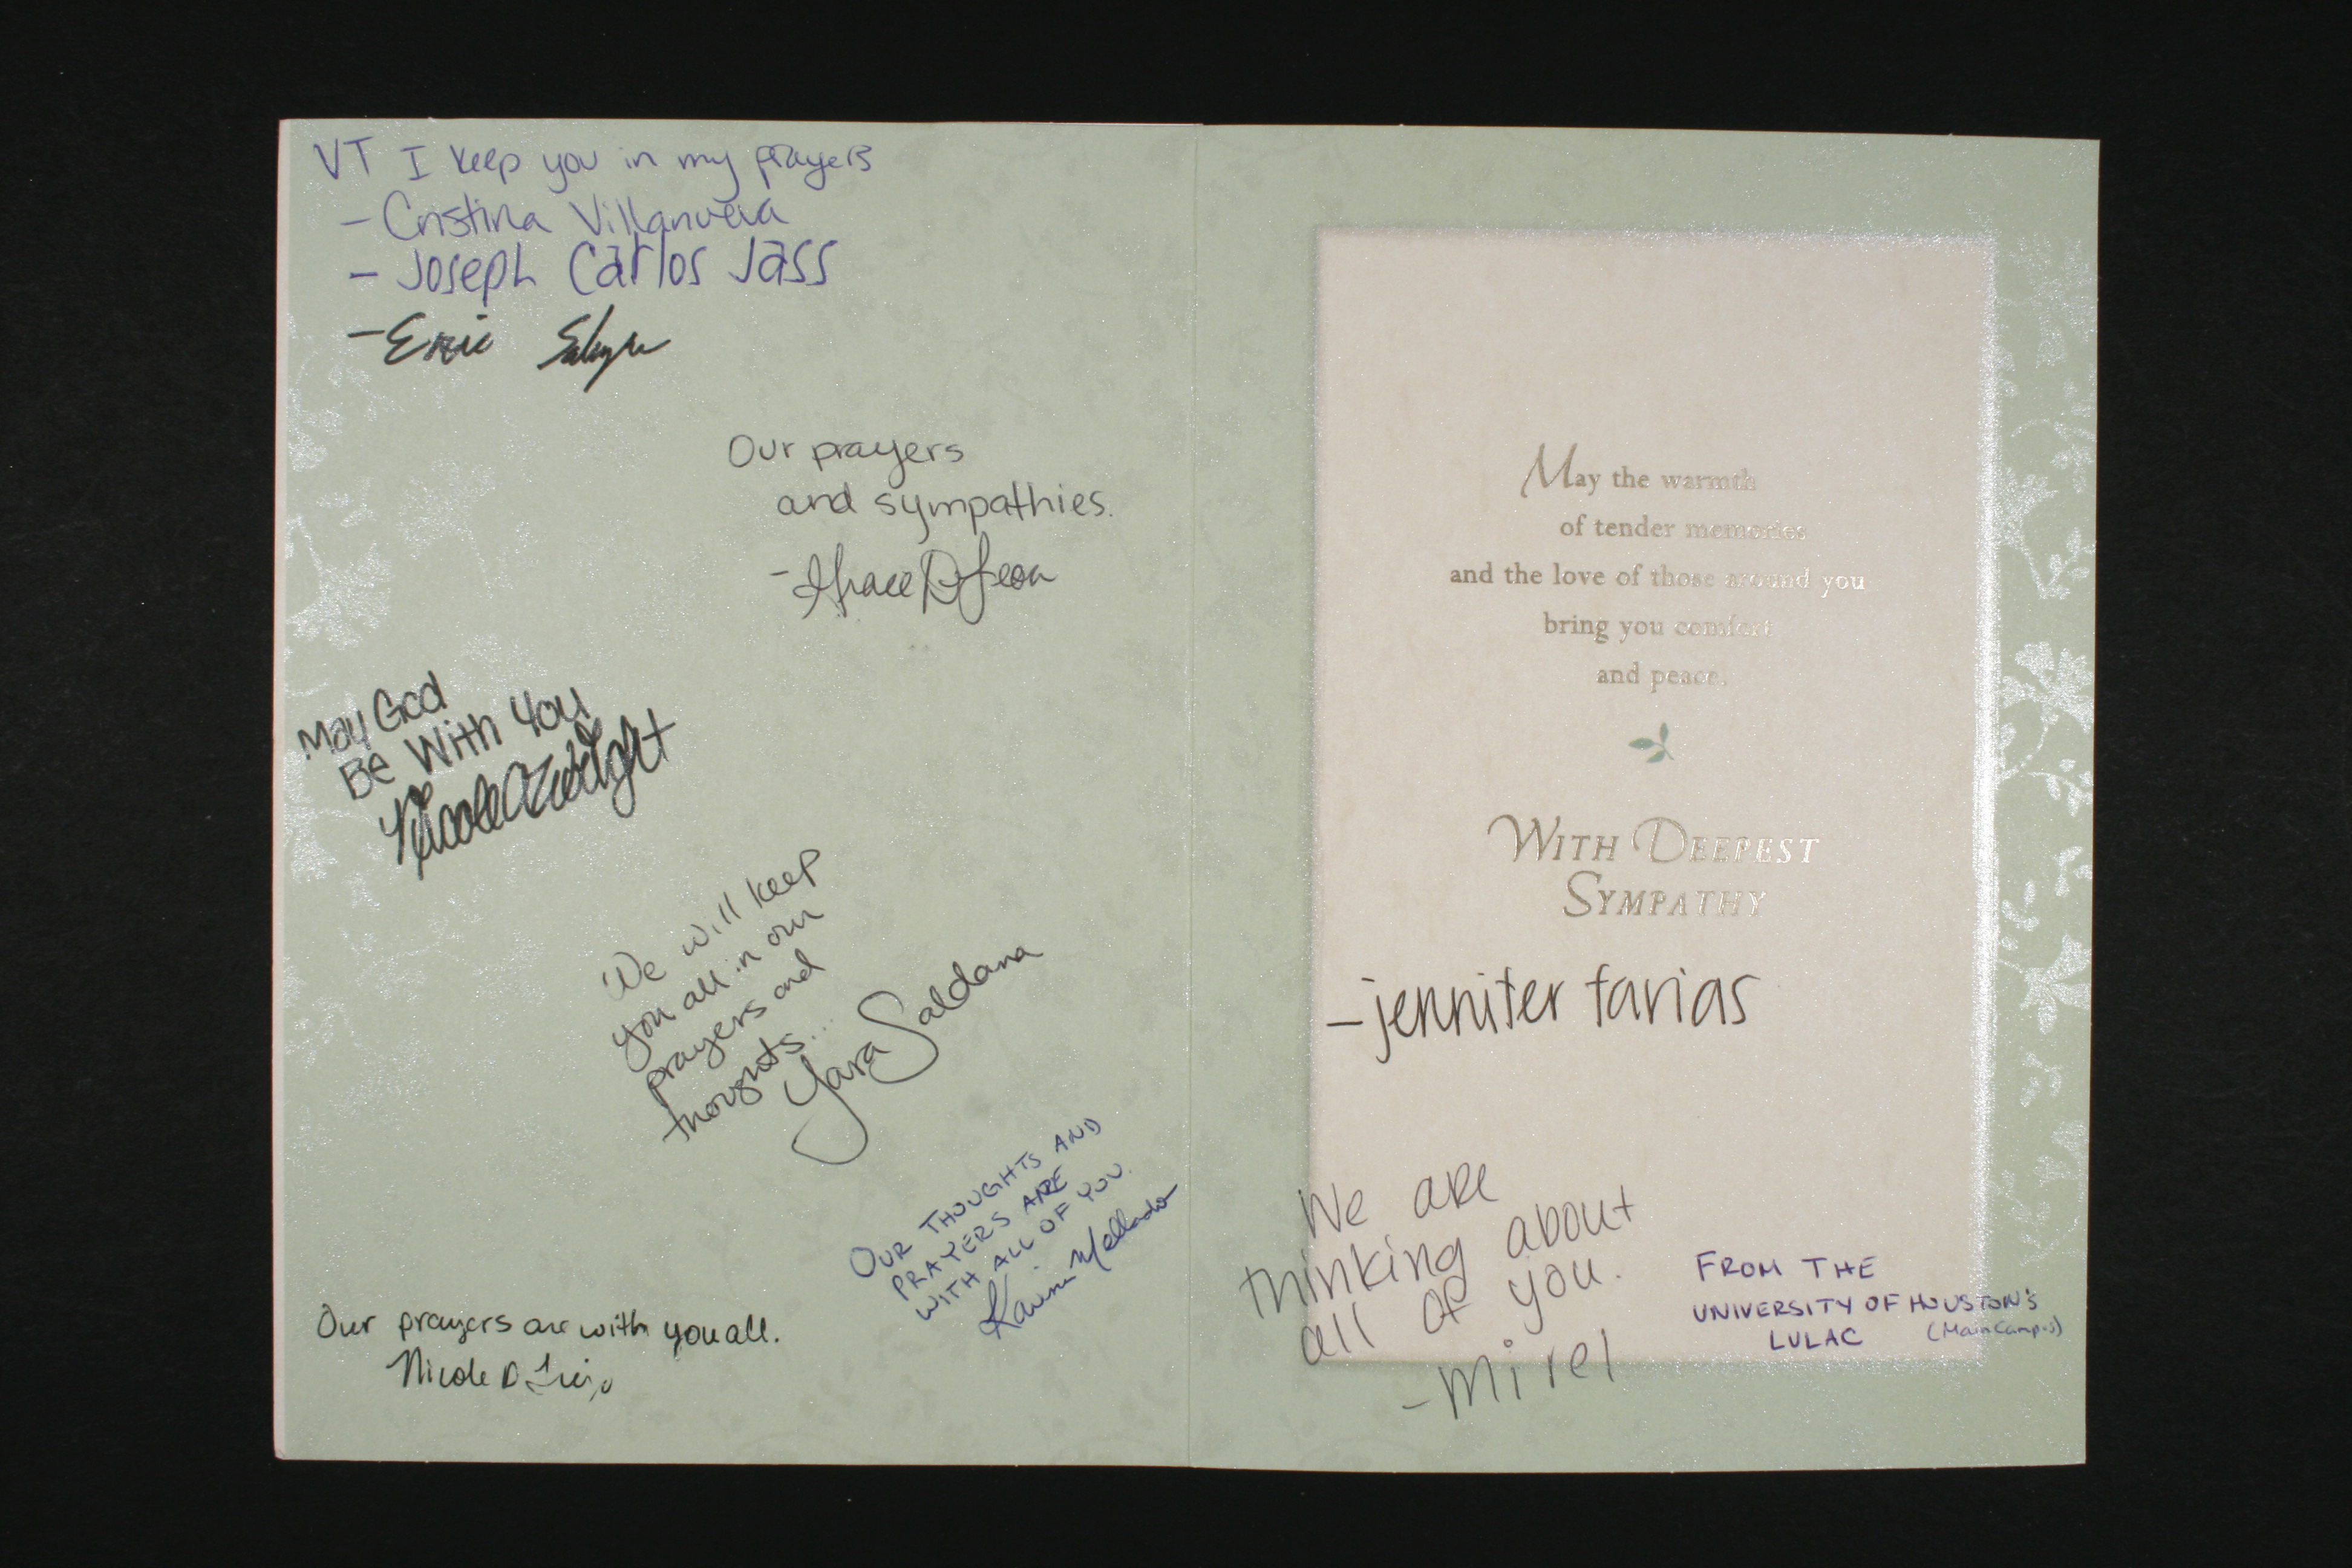 VT I keep you in my prayers
- Cristina Villanueva
- Joseph Carlos Jass
- Eric
Our prayers
and sympathies.
- Grace D. Leon
May God
Be With You
Nicole
We will keep
you all in our
prayers and
thoughts...
Yara Saldana
OUR THOUGHTS AND
PRAYERS ARE
WITH ALL OF YOU.
Karina Mellado
Our prayers are with you all.
Nicole D.
May the warmth
of tender memories
and the love of those around you
bring you comfort
and peace.
WITH DEEPEST
SYMPATHY
- jennifer farias
We are
thinking about
all of you.
- Mirel
FROM THE
UNIVERSITY OF HOUSTON'S
LULAC (Main Campus)